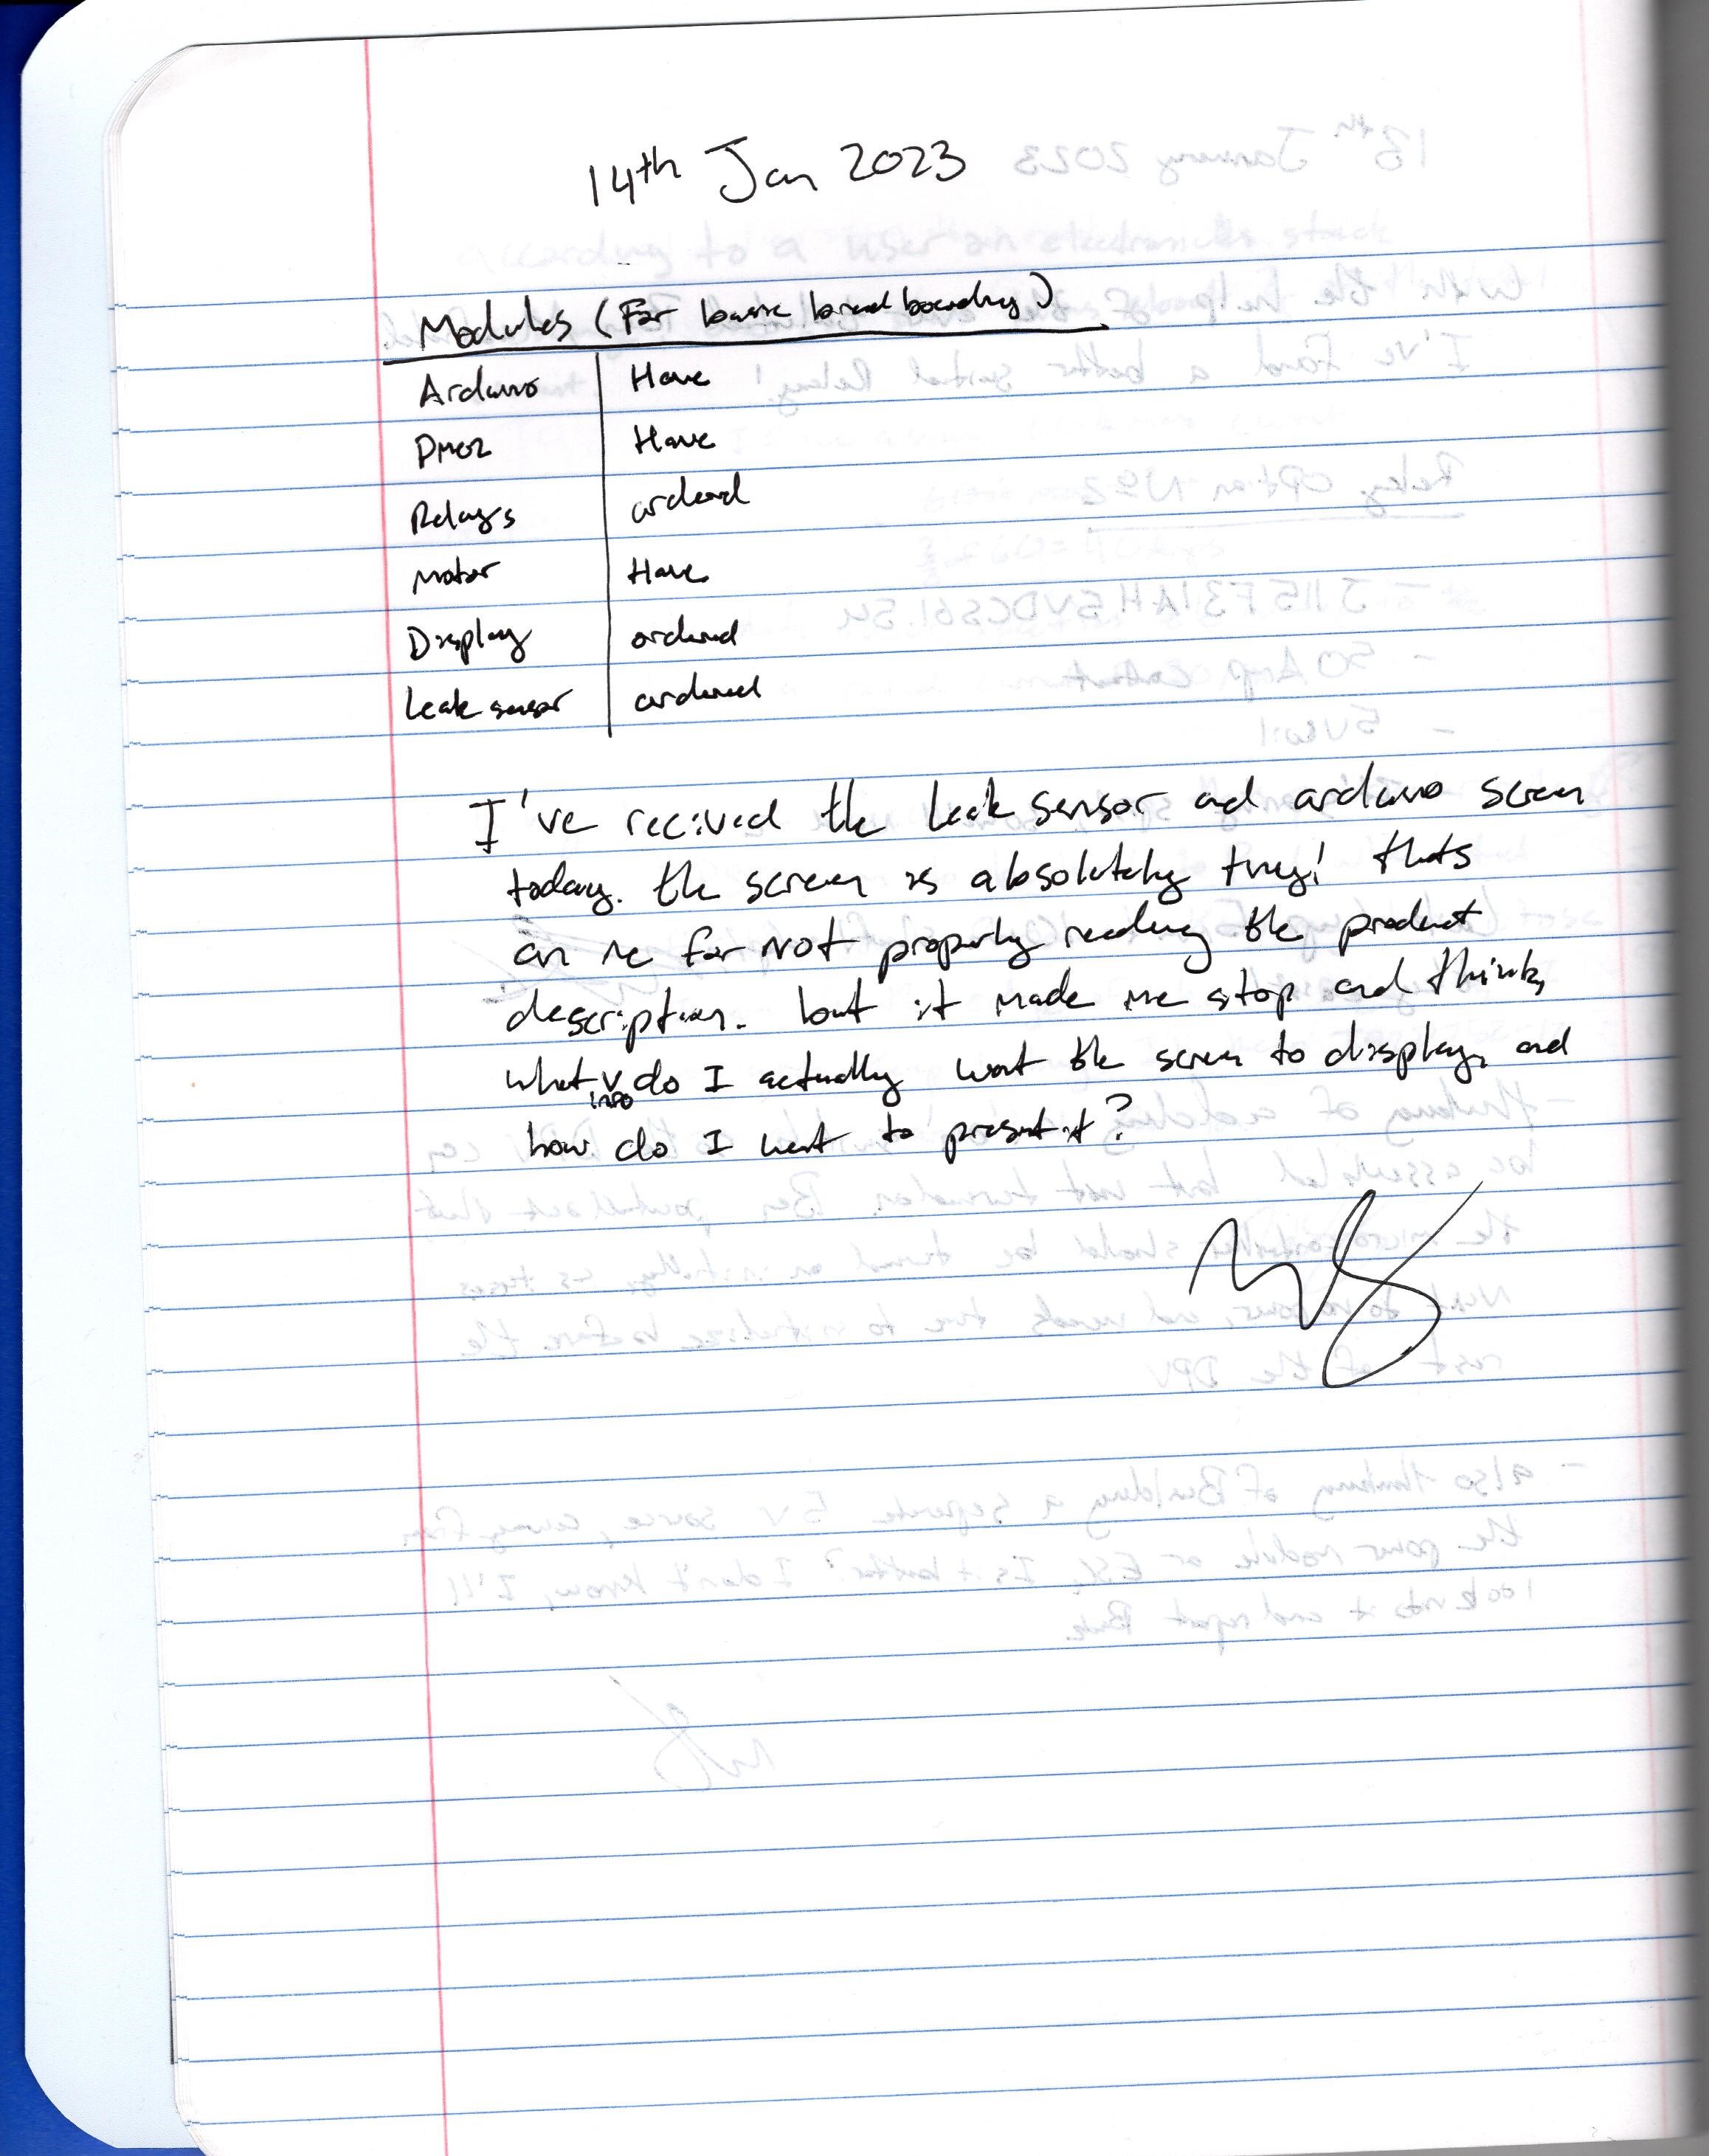 14th Jan 2023
Modules (For basic bread boarding)
Arduino | Have
| Have
Relays | ordered
Motor | Have
Display | ordered
Leak sensor | ordered
I've received the leak sensor and arduino screen
today. the screen is absolutely tiny! thats
on me for not properly reading the product
description. but it made me stop and think,
what info do I actually want the screen to display, and
how do I want to present it?